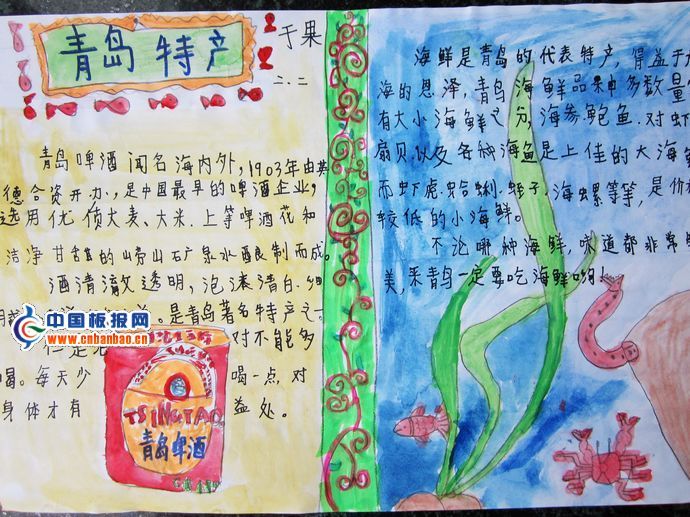 青岛特产
于果
二.二
青岛啤酒闻名海内外,1903年由英
德合资开办,是中国最早的啤酒企业,
选用优质大麦、大米.上等啤酒花和
洁净甘甜的崂山矿泉水酿制而成。
酒清澈透明,泡沫清白.细
是青岛著名特产之
对不能多
喝。每天少
喝一点,对
身体才有
益处。
中国板报网
www.cnbanbao.cn
TSINGTAO
青岛啤酒
海鲜是青岛的代表特产,得益于大
海的恩泽,青岛海鲜品种多数量
有大小海鲜之分,海参.鲍鱼.对虾
扇贝以及各种海鱼是上佳的大海
而虾虎.蛤蜊.蛏子.海螺等等,是价
较低的小海鲜。
不论哪种海鲜,味道都非常
美,来青岛一定要吃海鲜哟!